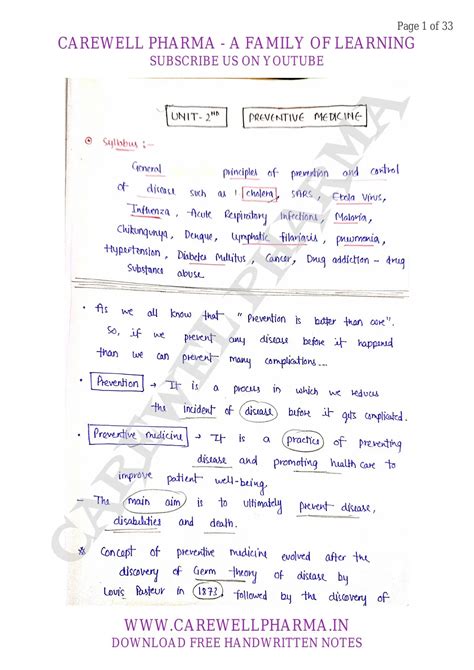 Page 1 of 33
CAREWELL PHARMA - A FAMILY OF LEARNING
SUBSCRIBE US ON YOUTUBE
UNIT-2ND PREVENTIVE MEDICINE
Syllabus :-
General principles of prevention and control
of disease such as cholera, SARS, Ebola Virus,
Influenza, Acute Respiratory Infections, Malaria,
Chikungunya, Dengue, Lymphatic filariasis, pneumonia,
Hypertension, Diabetes Mellitus, Cancer, Drug addiction - drug
Substance abuse.
• As we all know that "Prevention is better than cure".
So, if we prevent any disease before it happened
than we can prevent many complications...
• Prevention → It is a process in which we reduces
the incident of disease before it gets complicated.
• Preventive medicine → It is a practice of preventing
disease and promoting health care to
improve patient well-being.
- The main aim is to ultimately prevent disease,
disabilities and death.
Concept of preventive medicine evolved after the
discovery of Germ theory of disease by
Louis Pasteur in 1873, followed by the discovery of
CAREWELL PHARMA
WWW.CAREWELLPHARMA.IN
DOWNLOAD FREE HANDWRITTEN NOTES